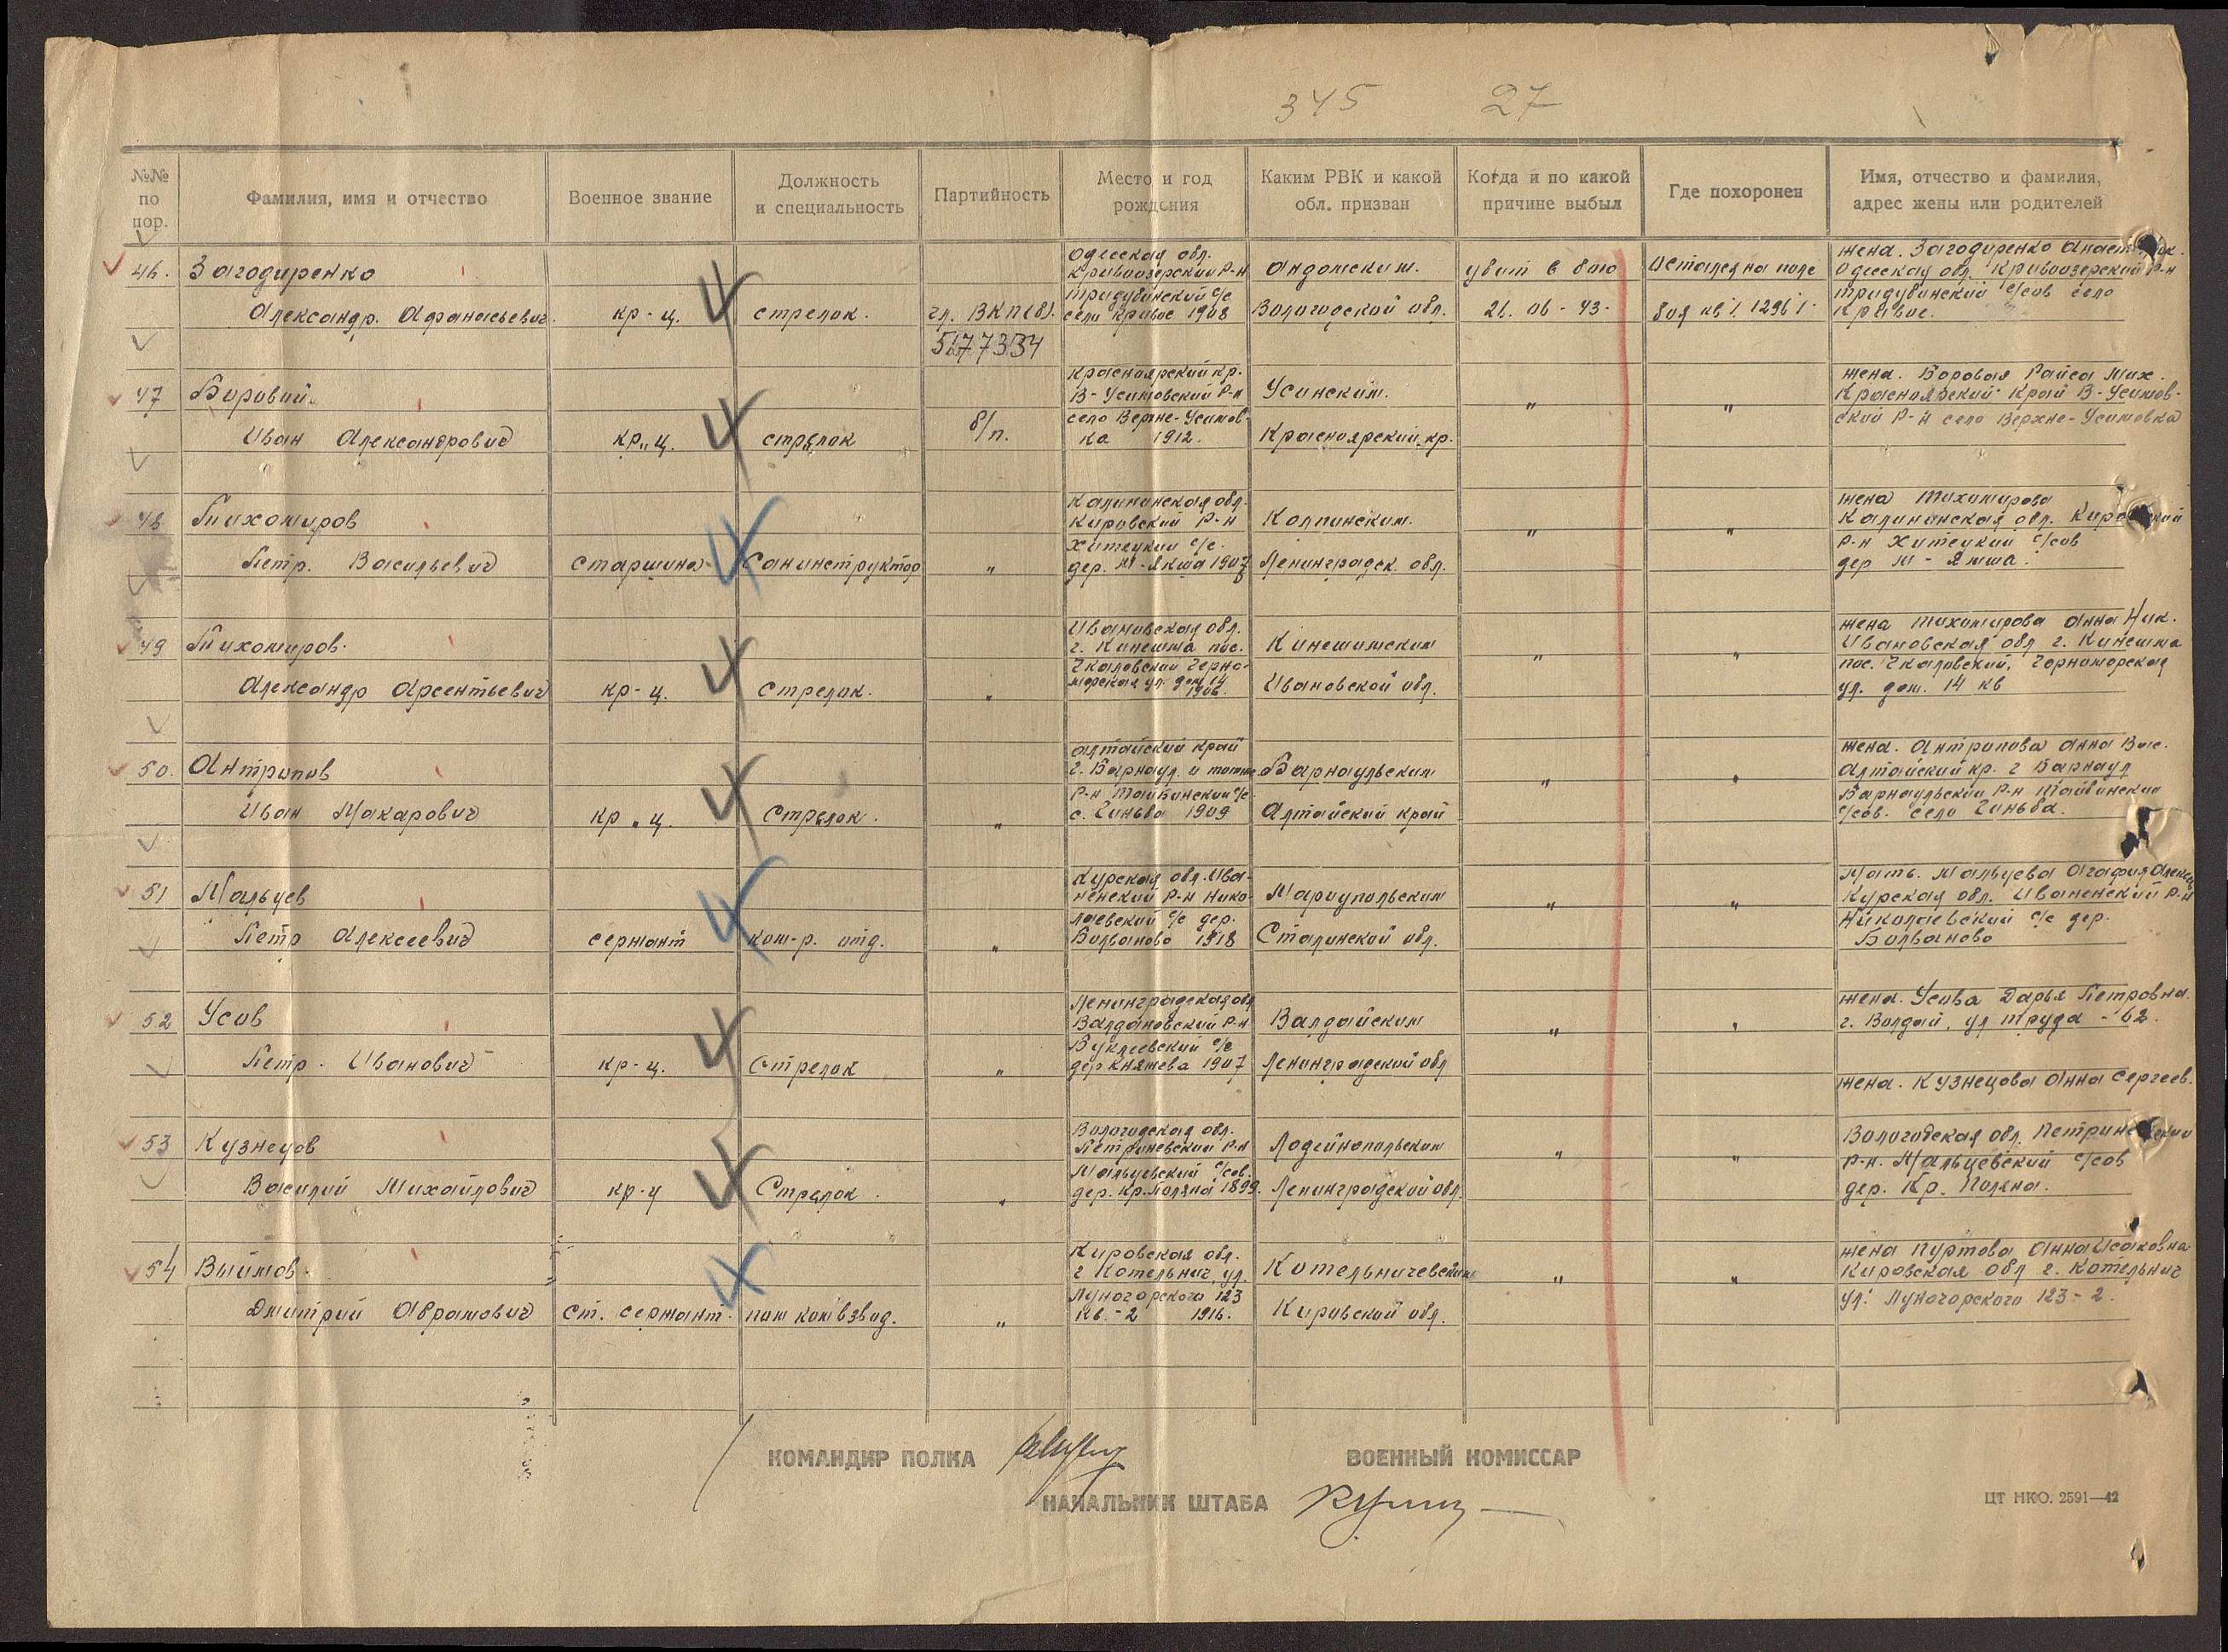 345 27
№№ по пор.
Фамилия, имя и отчество
Военное звание
Должность и специальность
Партийность
Место и год рождения
Каким РВК и какой обл. призван
Когда и по какой причине выбыл
Где похоронен
Имя, отчество и фамилия, адрес жены или родителей
46. Загодиренко
Александр. Афанасьевич.
кр-ц.
стрелок.
чл. ВКП(б).
Одесская обл.
Кривоозерский р-н
Тридубинский с/с
село Кривое 1908
Андомским.
Вологодской обл.
убит в бою
26. 06 - 43 -
Остался на поле
боя кв. 1296
жена. Загодиренко
Одесская обл. Кривоозерский р-н
Тридубинский с/сов село
Кривое.
47 Боровий.
Иван Александрович
кр„ц.
стрелок
б/п.
Красноярский кр.
В-Усиновский р-н
село Верхне-Усинов-
ка 1912.
Усинским.
Красноярский кр.
„
„
жена. Боровая Раиса Мих.
Красноярский Край В-Усинов-
ский р-н село Верхне-Усиновка
48 Тихомиров
Петр. Васильевич
старшина
Санинструктор
„
Калининская обл.
Кировский р-н
Хитецкий с/с.
1907
Колпинским.
Ленинградск. обл.
„
„
жена Тихомирова
Калининская обл.
р-н Хитецкий с/сов
дер
49 Тихомиров.
Александр Арсентьевич
кр-ц.
Стрелок.
„
Ивановская обл.
г. Кинешма пос.
Чкаловский Черно-
морская ул. дом 14
1906.
Кинешимским
Ивановской обл.
„
„
жена Тихомирова Анна Ник.
Ивановская обл г. Кинешма
пос. Чкаловский, Черноморская
ул. дом. 14 кв
50. Антропов
Иван Макарович
кр „ ц.
Стрелок.
„
Алтайский край
г. Барнаул.
с. Чиньва 1909
Барнаульским
Алтайский край
„
„
жена. Антропова Анна Вас.
Алтайский кр. г Барнаул
Барнаульский р-н
с/сов. село Чиньва.
51 Мальцев
Петр Алексеевич
сержант
ком-р. отд.
„
Курская обл. Ива-
ненский р-н Нико-
лаевский с/с дер.
Болваново 1918
Мариупольским
Сталинской обл.
„
„
Мать. Мальцева Агафия
Курская обл. Иваненский р-н
Николаевский с/с дер.
Болваново
52 Усов
Петр. Иванович
кр-ц.
Стрелок
„
Ленинградская обл
Валдановский р-н
Буклеевский с/с
дер Княжева 1907
Валдайским
Ленинградской обл
„
„
жена. Усова Дарья Петровна.
г. Волдай, ул Труда - 62.
53 Кузнецов
Василий Михайлович
кр-ц
Стрелок.
„
Вологодская обл.
Петриневский р-н
Мальцевский с/сов.
дер. Кр. Поляна 1899.
Лодейнопольским
Ленинградской обл.
„
„
жена. Кузнецова Анна Сергеев.
Вологодская обл.
р-н. Мальцевский с/сов
дер. Кр. Поляна.
54 Выймов.
Дмитрий Абрамович
ст. сержант.
пом ком взвод.
„
Кировская обл.
г Котельнич, ул.
Луногорского 123
кв. - 2 1916.
Котельничевским
Кировской обл.
„
„
жена Пуртова Анна Исаковна
Кировская обл г. Котельнич
ул. Луногорского 123 - 2.
КОМАНДИР ПОЛКА
ВОЕННЫЙ КОМИССАР
НАЧАЛЬНИК ШТАБА
ЦТ НКО. 2591—42